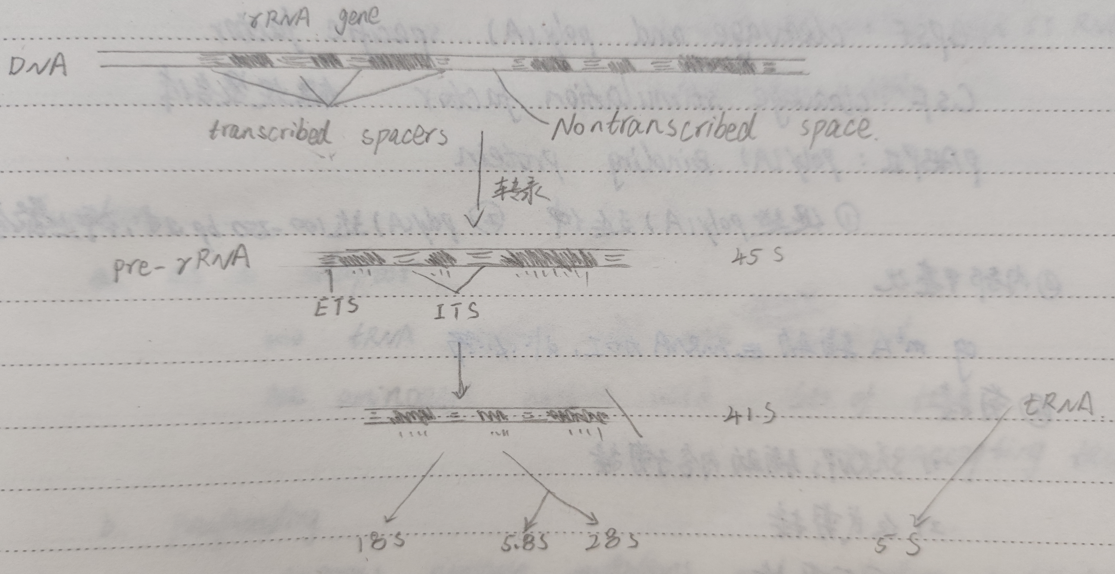 rRNA gene
DNA
transcribed spacers
Nontranscribed space.
转录
pre-rRNA
45 S
ETS
ITS
41S
tRNA.
18S
5.8S
28S
5 S